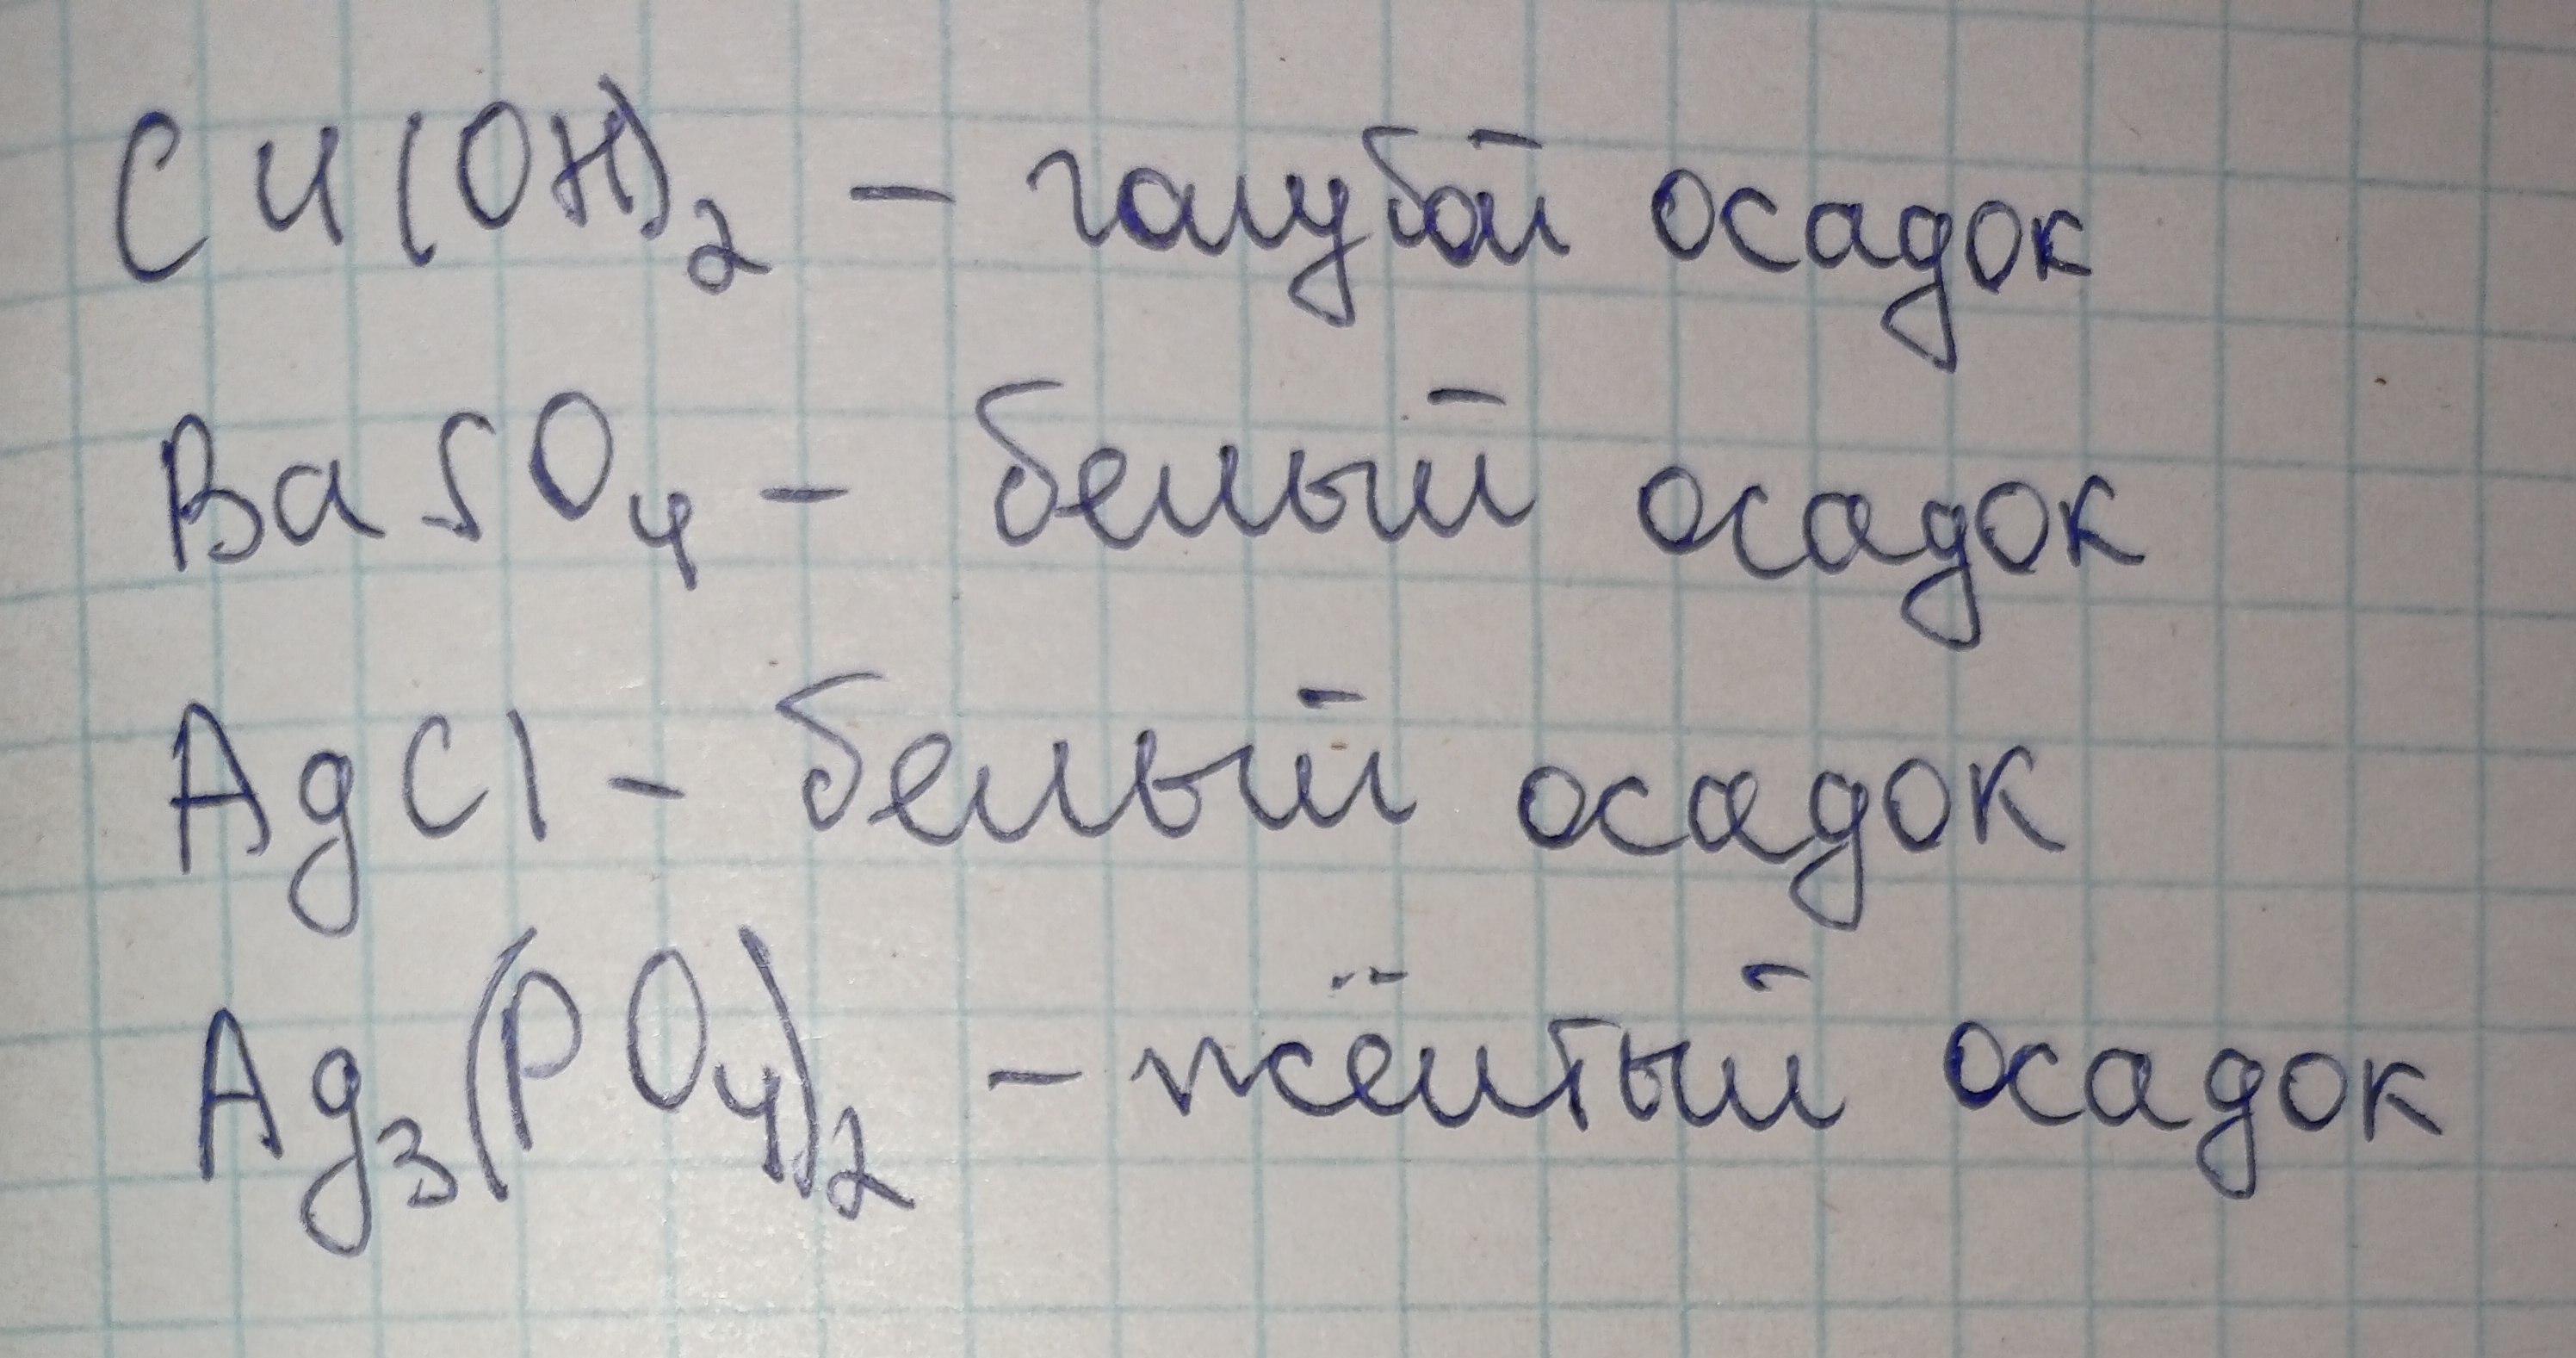 Cu(OH)₂ – голубой осадок
BaSO₄ – белый осадок
AgCl – белый осадок
Ag₃(PO₄)₂ – жёлтый осадок